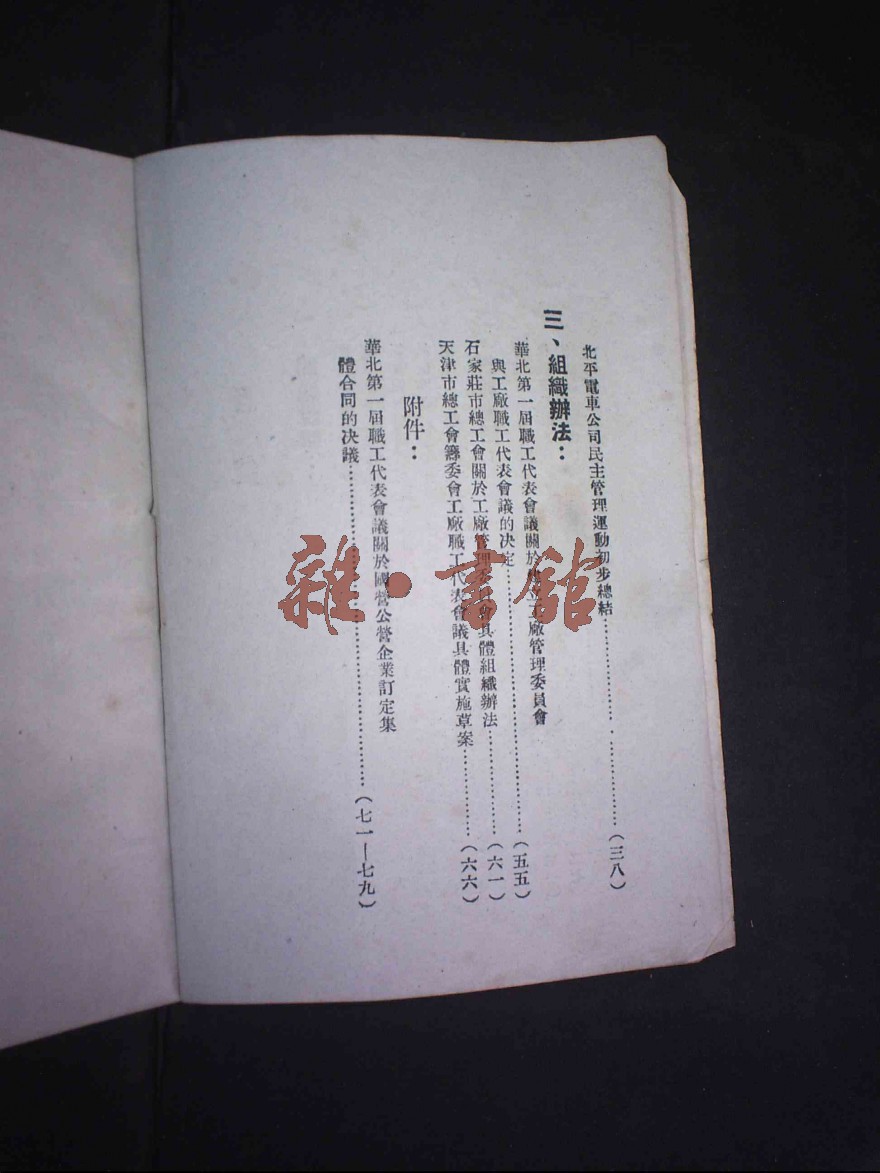 北平電車公司民主管理運動初步總結……………………(三八)
三、組織辦法：
華北第一屆職工代表會議關於建立工廠管理委員會
與工廠職工代表會議的决定……………………(五五)
石家莊市總工會關於工廠管理委員會具體組織辦法……………(六一)
天津市總工會籌委會工廠職工代表會議具體實施草案……………(六六)
附件：
華北第一屆職工代表會議關於國營公營企業訂定集
體合同的决議……………………(七一—七九)
雜·書館